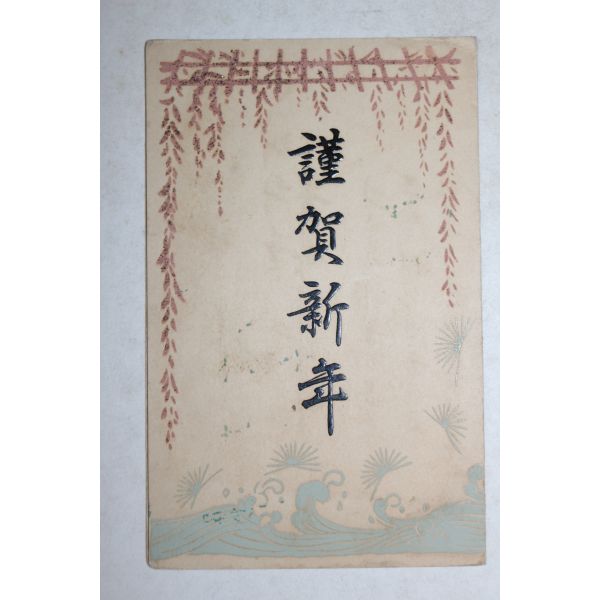 謹賀新年